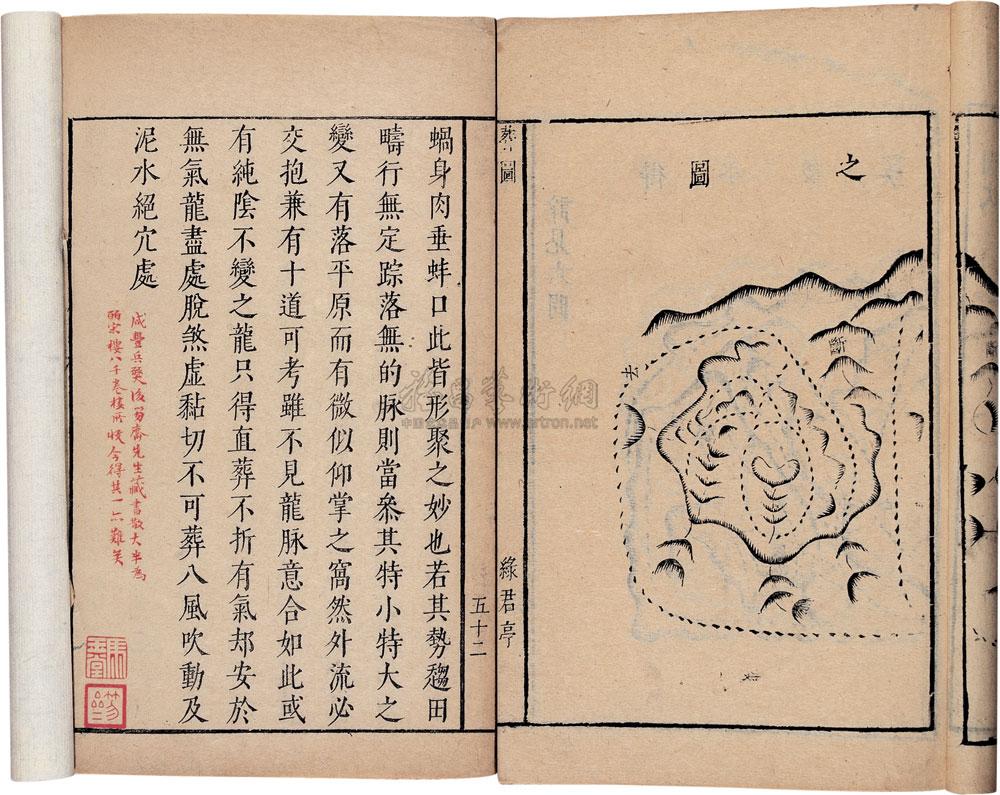 之
圖
斷
去
葬圖
綠君亭
五十二
蝸身肉垂蚌口此皆形聚之妙也若其勢趨田
疇行無定踪落無的脉則當叅其特小特大之
變又有落平原而有微似仰掌之窩然外流必
交抱兼有十道可考雖不見龍脉意合如此或
有純陰不變之龍只得直葬不折有氣邞安於
無氣龍盡處脫煞虛黏切不可葬八風吹動及
泥水絕穴處
咸豐兵燹後笏齋先生藏書散大半為
皕宋樓八千卷樓所收今得其一亦難矣